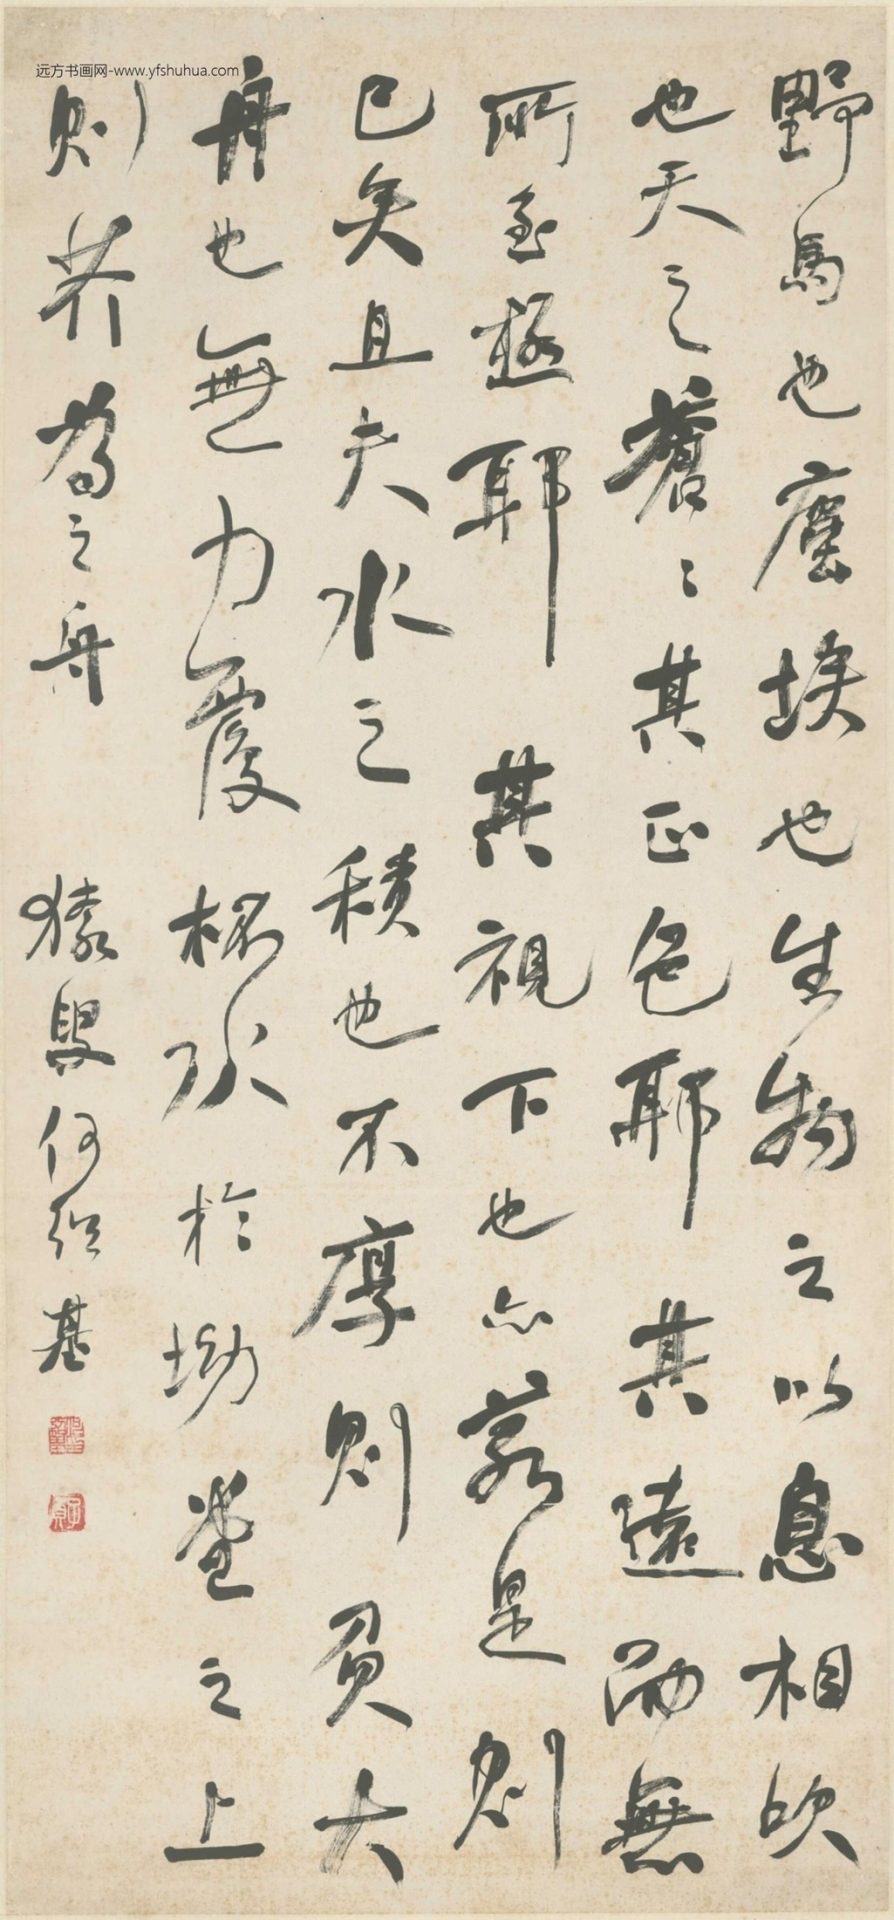 远方书画网-www.yfshuhua.com
野馬也塵埃也生物之以息相吹
也天之蒼〻其正色耶其遠而無
所至極耶其視下也亦若是則
已矣且夫水之積也不厚則負大
舟也無力覆杯水於坳堂之上
則芥為之舟
猿叟何紹基